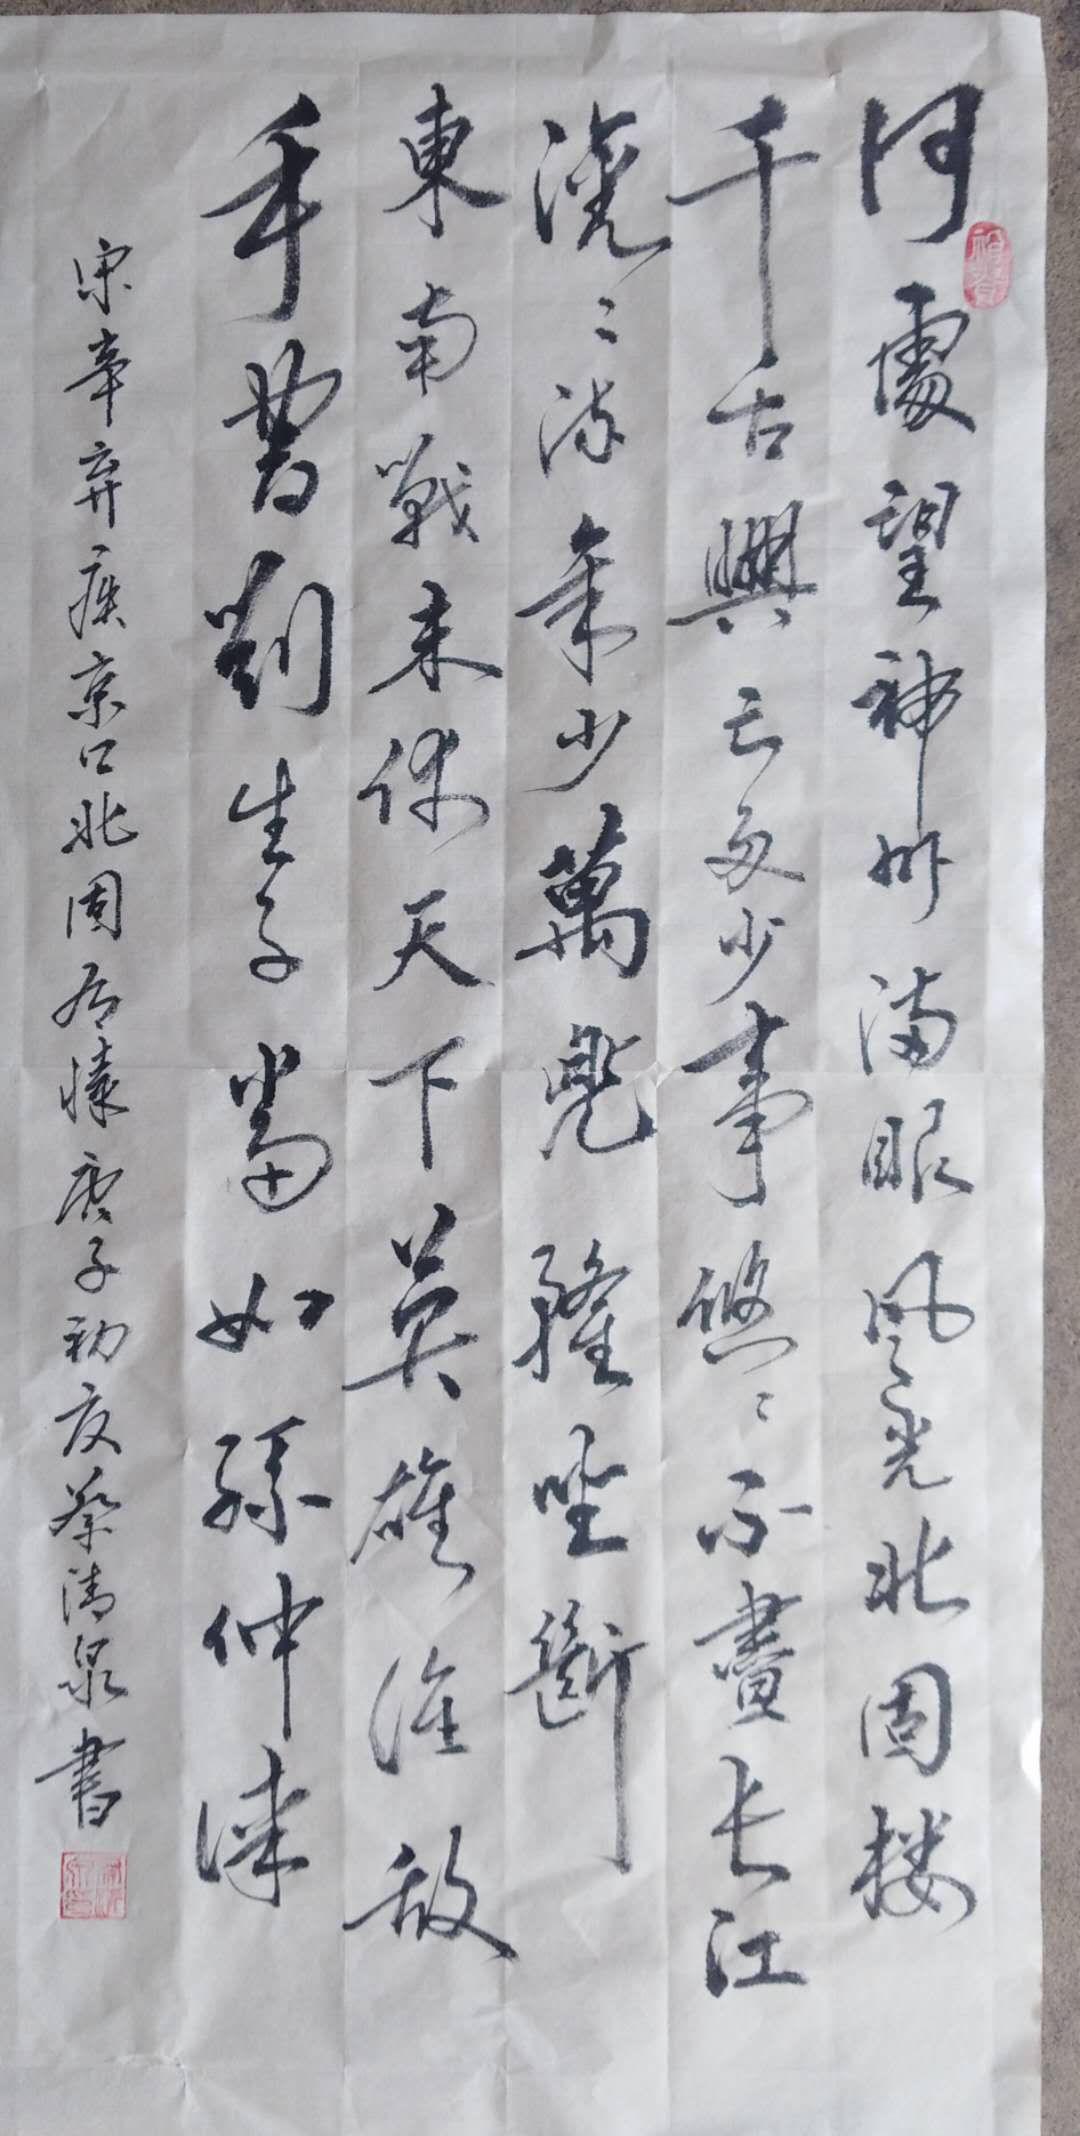 何處望神州满眼风光北固楼
千古興亡多少事悠〻不盡长江
滚〻流年少萬兜鍪坐斷
東南戰未休天下英雄谁敌
手曹劉生子當如孫仲谋
宋辛弃疾京口北固有懷 庚子初夏蔡清泉書